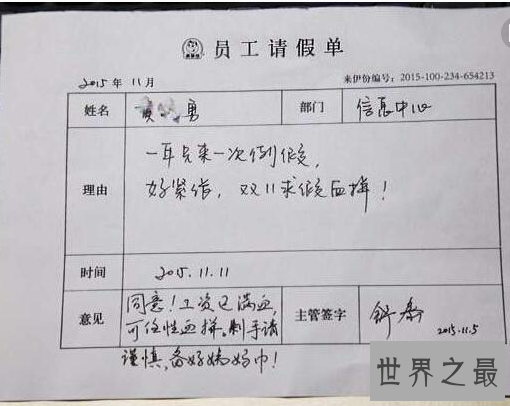 员工请假单
2015年11月
来伊份编号：2015-100-234-654213
姓名 黄 勇 部门 信息中心
理由
一年只来一次例假，
好紧张，双11求假血拼！
时间 2015.11.11
意见
同意！工资已满血，
可任性血拼。剁手请
谨慎，备好姨妈巾！
主管签字
2015.11.5
世界之最